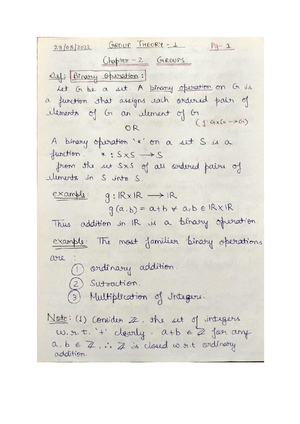 23/08/2022 GROUP THEORY - 1 Pg - 1
Chapter - 2 GROUPS
Def: Binary Operation :
Let G be a set. A binary operation on G is
a function that assigns each ordered pair of
elements of G an element of G
(f: G×G → G)
OR
A binary operation '*' on a set S is a
function * : S×S → S
from the set S×S of all ordered pairs of
elements in S into S.
example: g : ℝ×ℝ → ℝ
g(a,b) = a+b ∀ a,b ∈ ℝ×ℝ
Thus addition in ℝ is a binary operation
example: The most familiar binary operations
are :
① ordinary addition.
② Sutraction.
③ Multiplication of Integers.
Note: (1) Consider ℤ, the set of integers
w.r.t. '+' clearly. a+b ∈ ℤ for any
a, b ∈ ℤ, ∴ ℤ is closed w.r.t ordinary
addition.